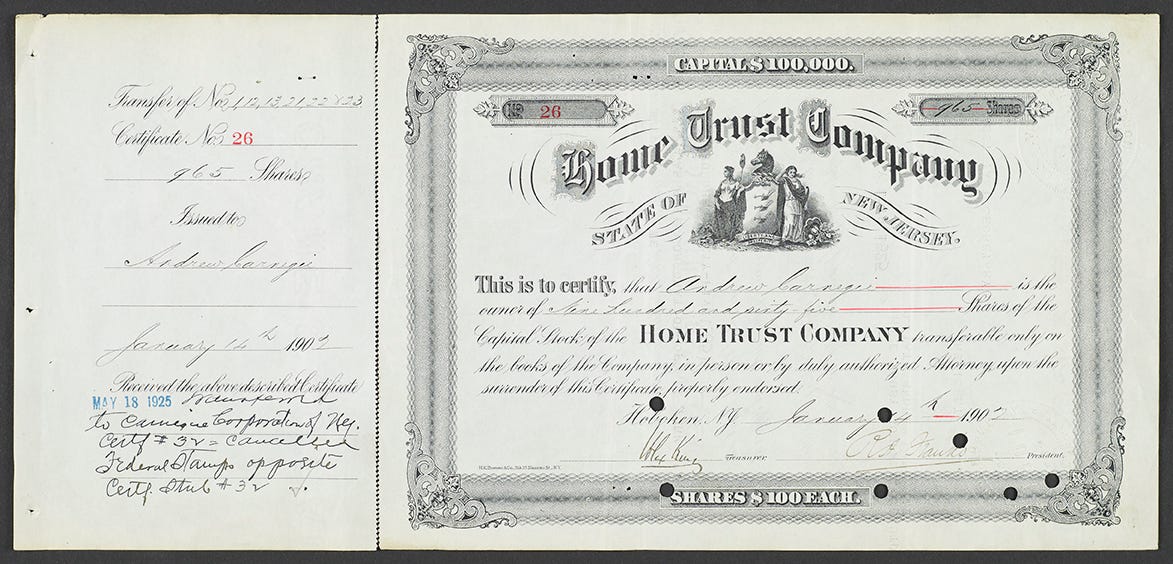 Transfer of Nos 1, 12, 13, 21, 22 & 23
Certificate No. 26
965 Shares
Issued to
Andrew Carnegie
January 14th 1902
Received the above described Certificate
MAY 18 1925 Transferred
to Carnegie Corporation of N.Y.
Certf # 32 = Cancelled
Federal Stamps opposite
Certf. Stub # 32
CAPITAL $100,000.
No 26
965 Shares
Home Trust Company
STATE OF NEW JERSEY.
This is to certify, that Andrew Carnegie is the
owner of Nine hundred and sixty five Shares of the
Capital Stock of the HOME TRUST COMPANY transferable only on
the books of the Company, in person or by duly authorized Attorney, upon the
surrender of this Certificate, properly endorsed.
Hoboken, N.J. January 14th 1902
Alex King Treasurer R A Franks President.
SHARES $100 EACH.